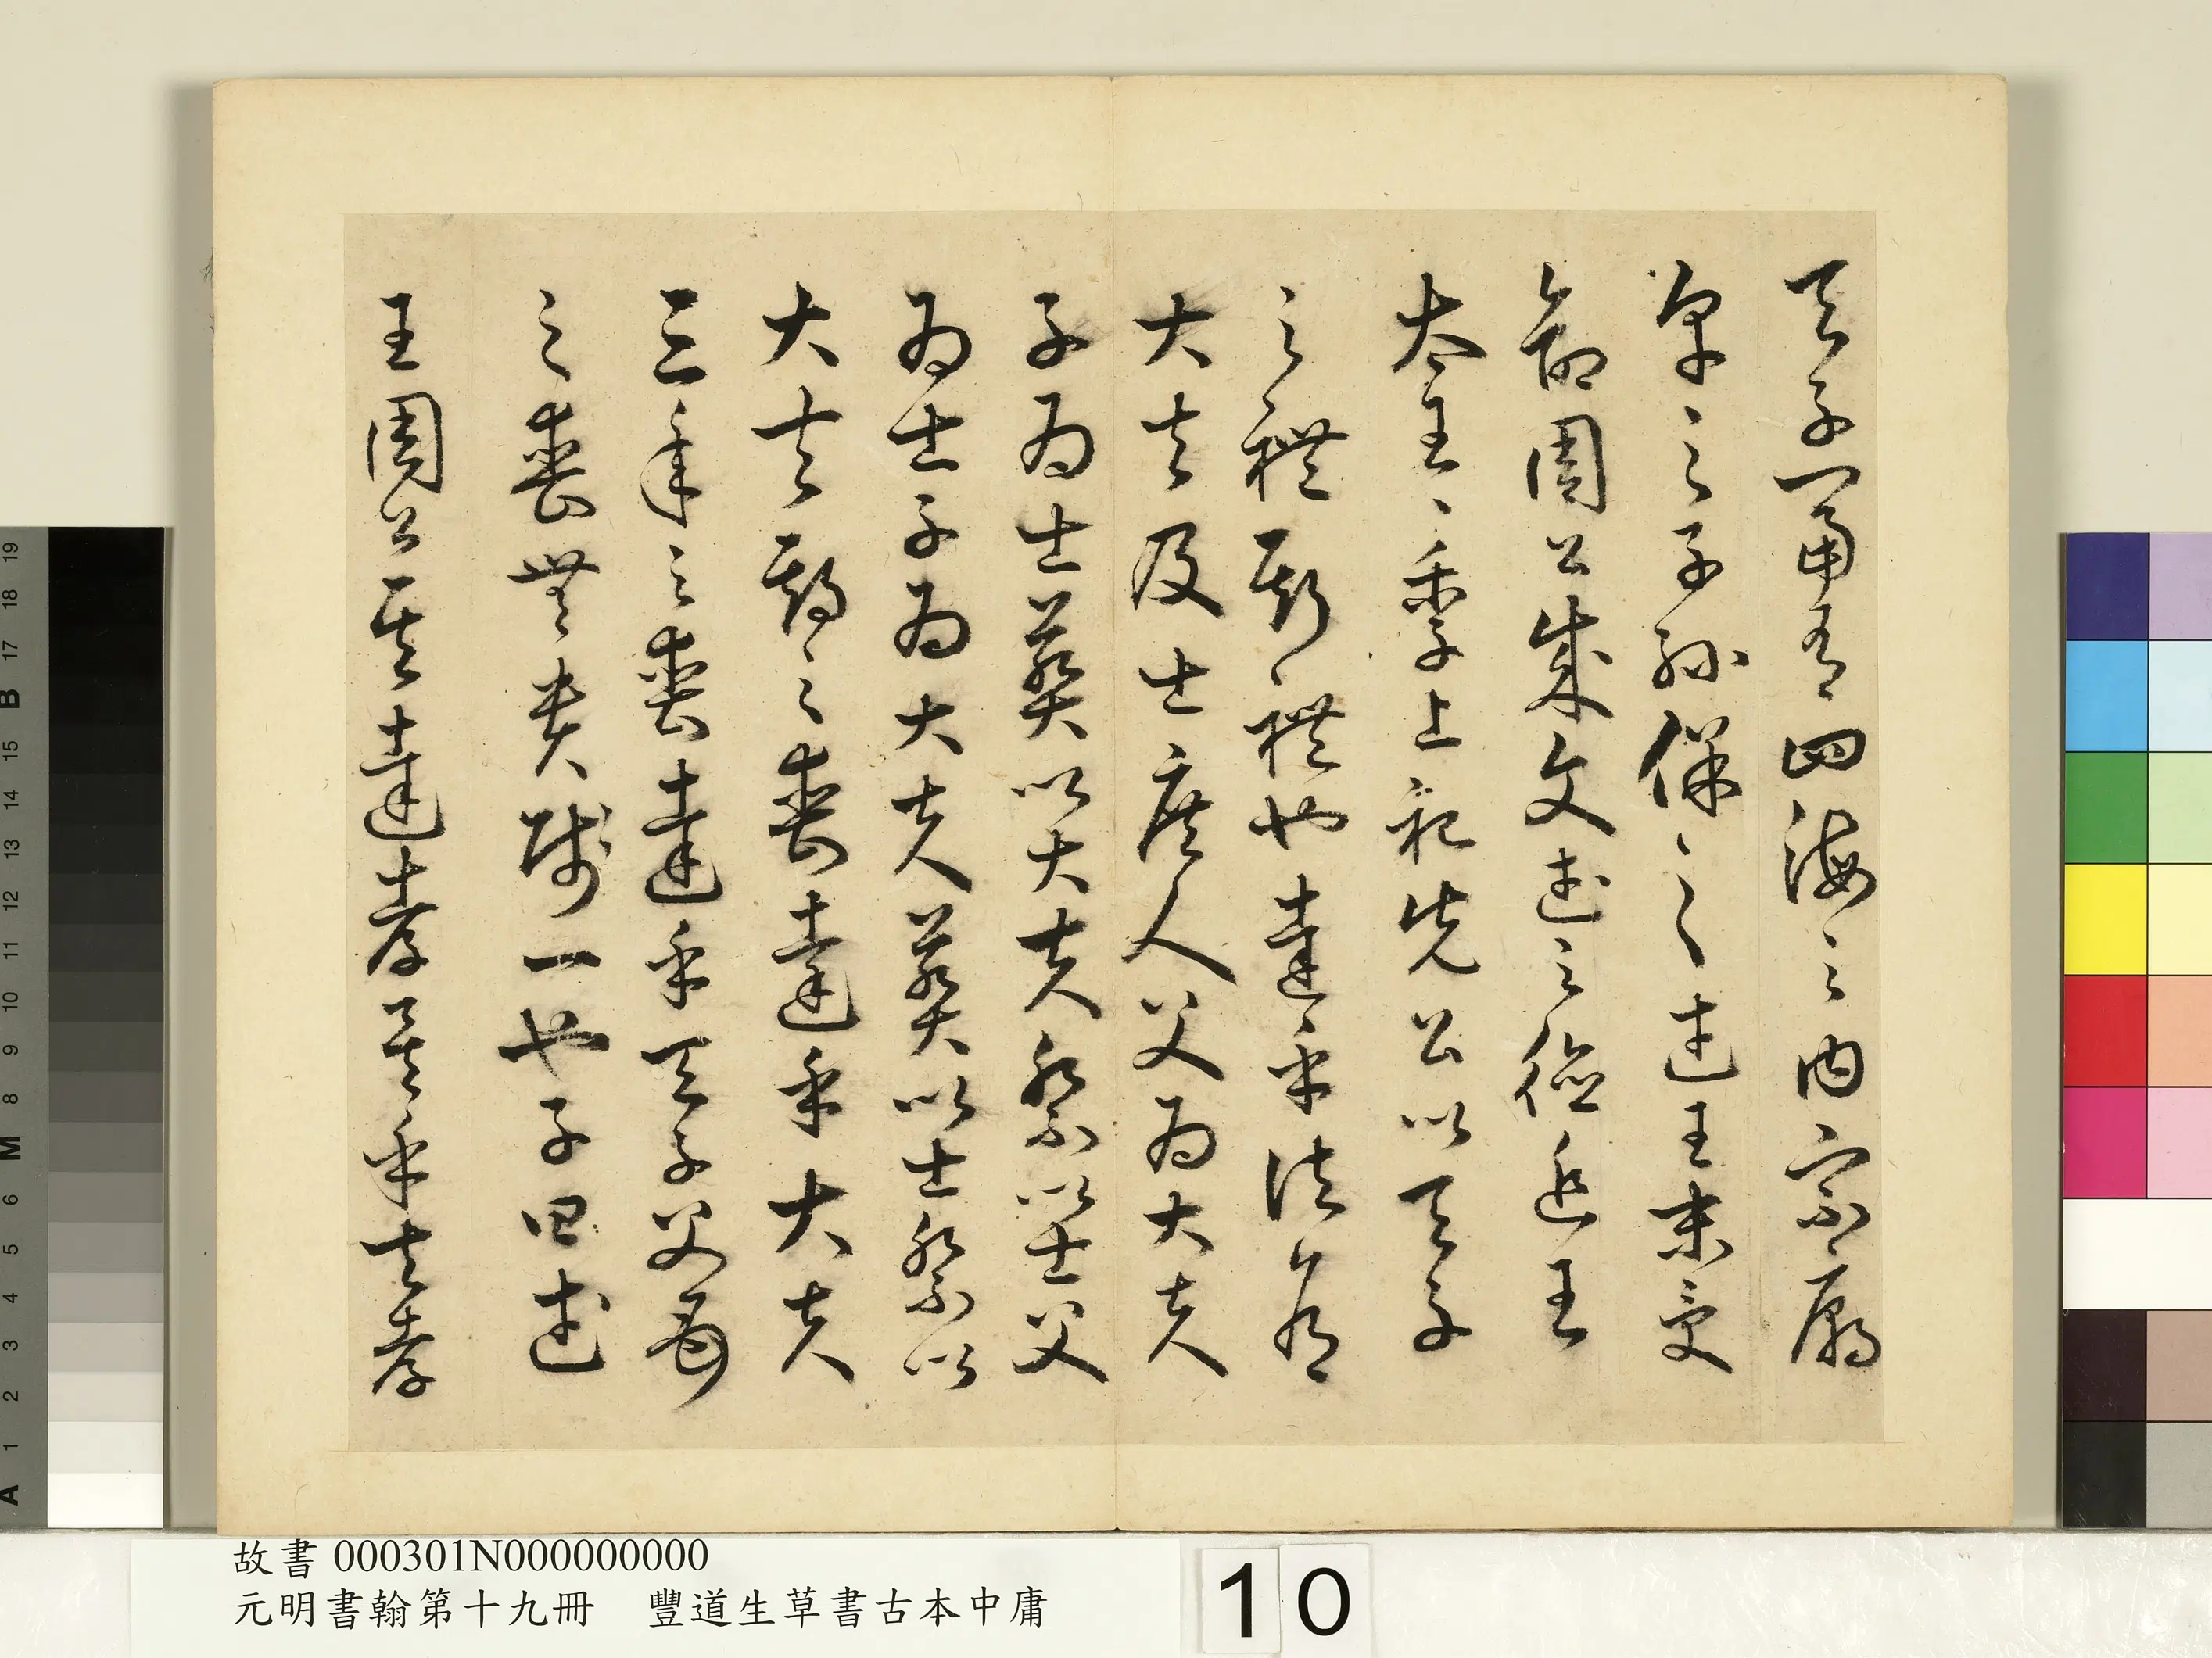 天子富有四海之內宗廟
享之子孫保之武王末受
命周公成文武之德追王
太王王季上祀先公以天子
之禮斯禮也達乎諸侯
大夫及士庶人父為大夫
子為士葬以大夫祭以士父
為士子為大夫葬以士祭以
大夫期之喪達乎大夫
三年之喪達乎天子父母
之喪無貴賤一也子曰武
王周公其達孝矣乎夫孝
A 1 2 3 4 5 6 M 8 9 10 11 12 13 14 15 B 17 18 19
故書 000301N000000000
元明書翰第十九冊 豐道生草書古本中庸
10